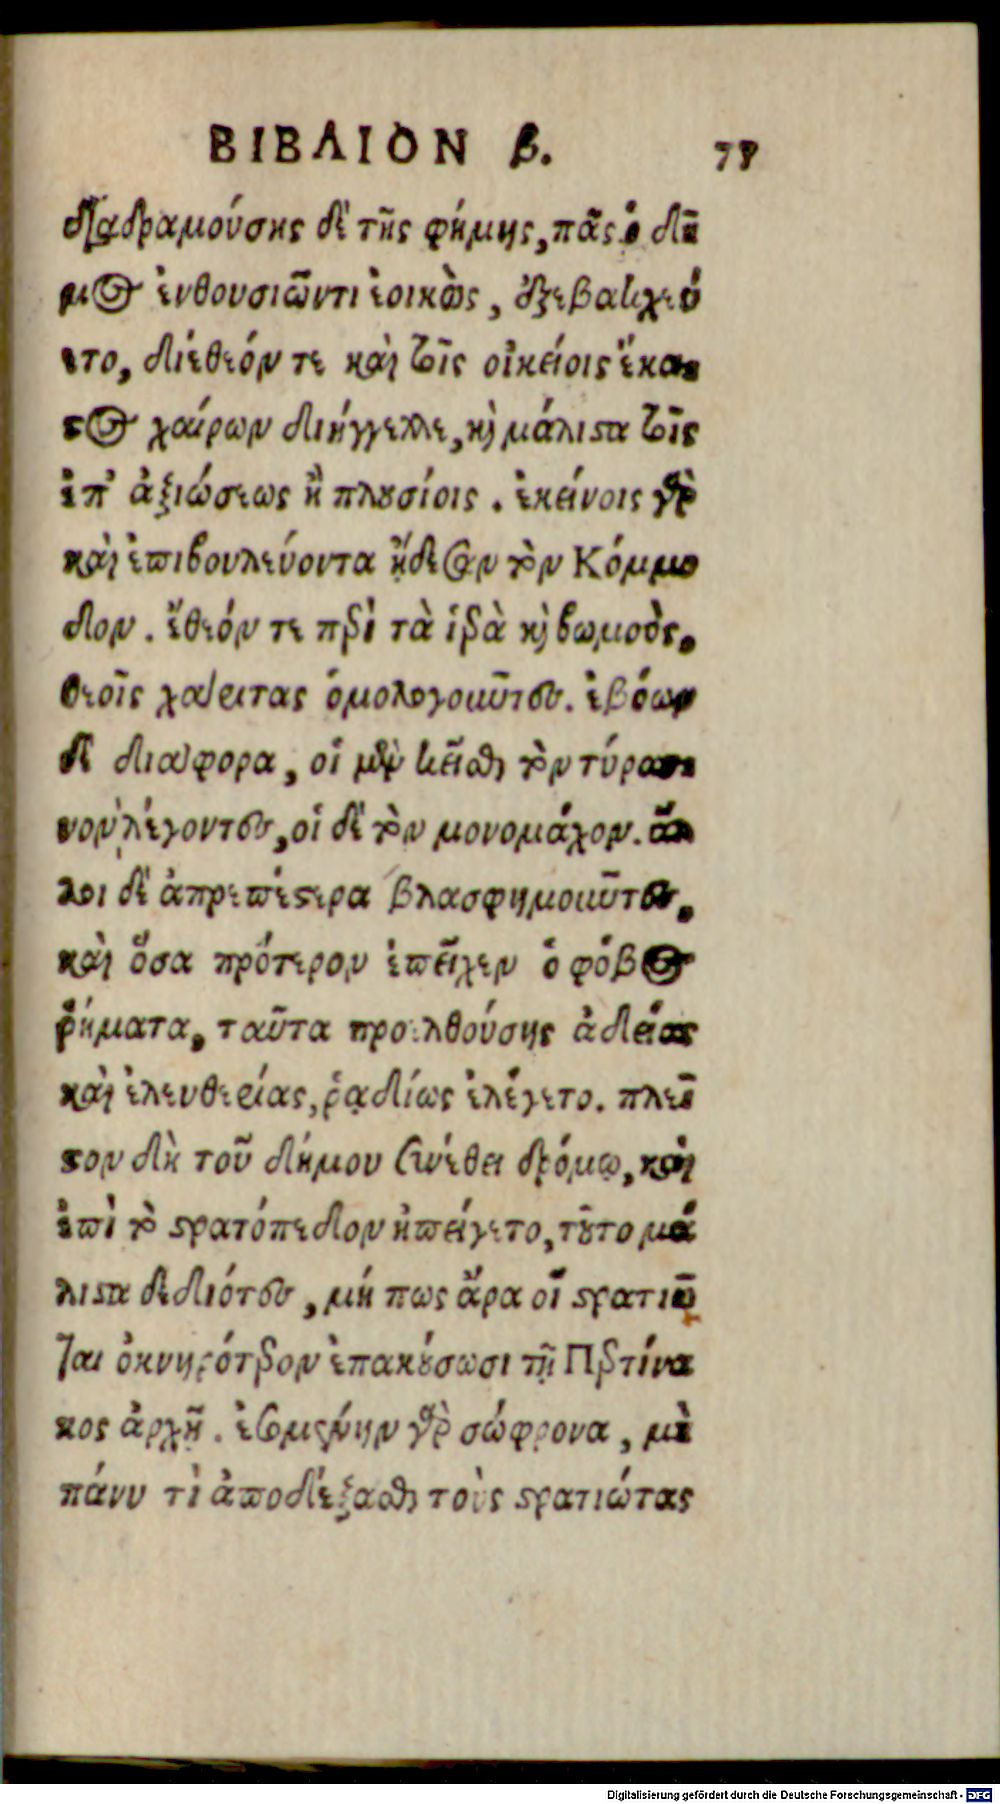 ΒΙΒΛΙΟΝ β.
διαδραμούσης δὲ τῆς φήμης, πᾶς ὁ δῆ
μος ἐνθουσιῶντι ἐοικὼς, ἐξεβακχεύ
ετο, διέθεόν τε καὶ τοῖς οἰκείοις ἕκα
στος χαίρων διήγγελλε, καὶ μάλιστα τοῖς
ἐπ' ἀξιώσεως ἢ πλουσίοις. ἐκείνοις γὰρ
καὶ ἐπιβουλεύοντα ᾔδεσαν τὸν Κόμμο
δον. ἔθεόν τε περὶ τὰ ἱερὰ καὶ βωμοὺς,
θεοῖς χάριτας ὁμολογοῦντες. ἐβόων
δὲ διάφορα, οἱ μὲν κεῖσθαι τὸν τύραν
νον λέγοντες, οἱ δὲ τὸν μονομάχον. ἄλ
λοι δὲ ἀπρεπέστερα βλασφημοῦντες,
καὶ ὅσα πρότερον ἐπεῖχεν ὁ φόβος
ῥήματα, ταῦτα προελθούσης ἀδείας
καὶ ἐλευθερίας, ῥᾳδίως ἐλέγετο. πλεῖ
στον δὴ τοῦ δήμου συνέθει δρόμῳ, καὶ
ἐπὶ τὸ στρατόπεδον ἠπείγετο, τοῦτο μά
λιστα δεδιότες, μή πως ἄρα οἱ στρατιῶ
ται ὀκνηρότερον ἐπακούσωσι τῇ Περτίνα
κος ἀρχῇ. σώφρονα, μὴ
πάνυ τὶ ἀποδέξασθαι τοὺς στρατιώτας
Digitalisierung gefördert durch die Deutsche Forschungsgemeinschaft - DFG